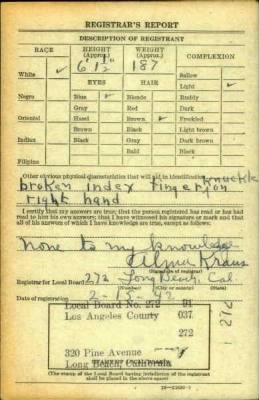 REGISTRAR'S REPORT
DESCRIPTION OF REGISTRANT
RACE HEIGHT (Approx.) WEIGHT (Approx.) COMPLEXION
White ✓ 6 1½" 187 Sallow
EYES HAIR Light ✓
Negro Blue ✓ Blonde Ruddy
Gray Red Dark
Oriental Hazel Brown ✓ Freckled
Brown Black Light brown
Indian Black Gray Dark brown
Bald Black
Filipino
Other obvious physical characteristics that will aid in identification knuckle
broken index finger on
right hand
I certify that my answers are true; that the person registered has read or has had
read to him his own answers; that I have witnessed his signature or mark and that
all of his answers of which I have knowledge are true, except as follows:
None to my knowledge
Alma Kraus
Registrar for Local Board 272 Long Beach, Cal.
Date of registration 42
Local Board No. 272 94
Los Angeles County 037
272
320 Pine Avenue
Long Beach, California
(The stamp of the Local Board having jurisdiction of the registrant
shall be placed in the above space.)
272